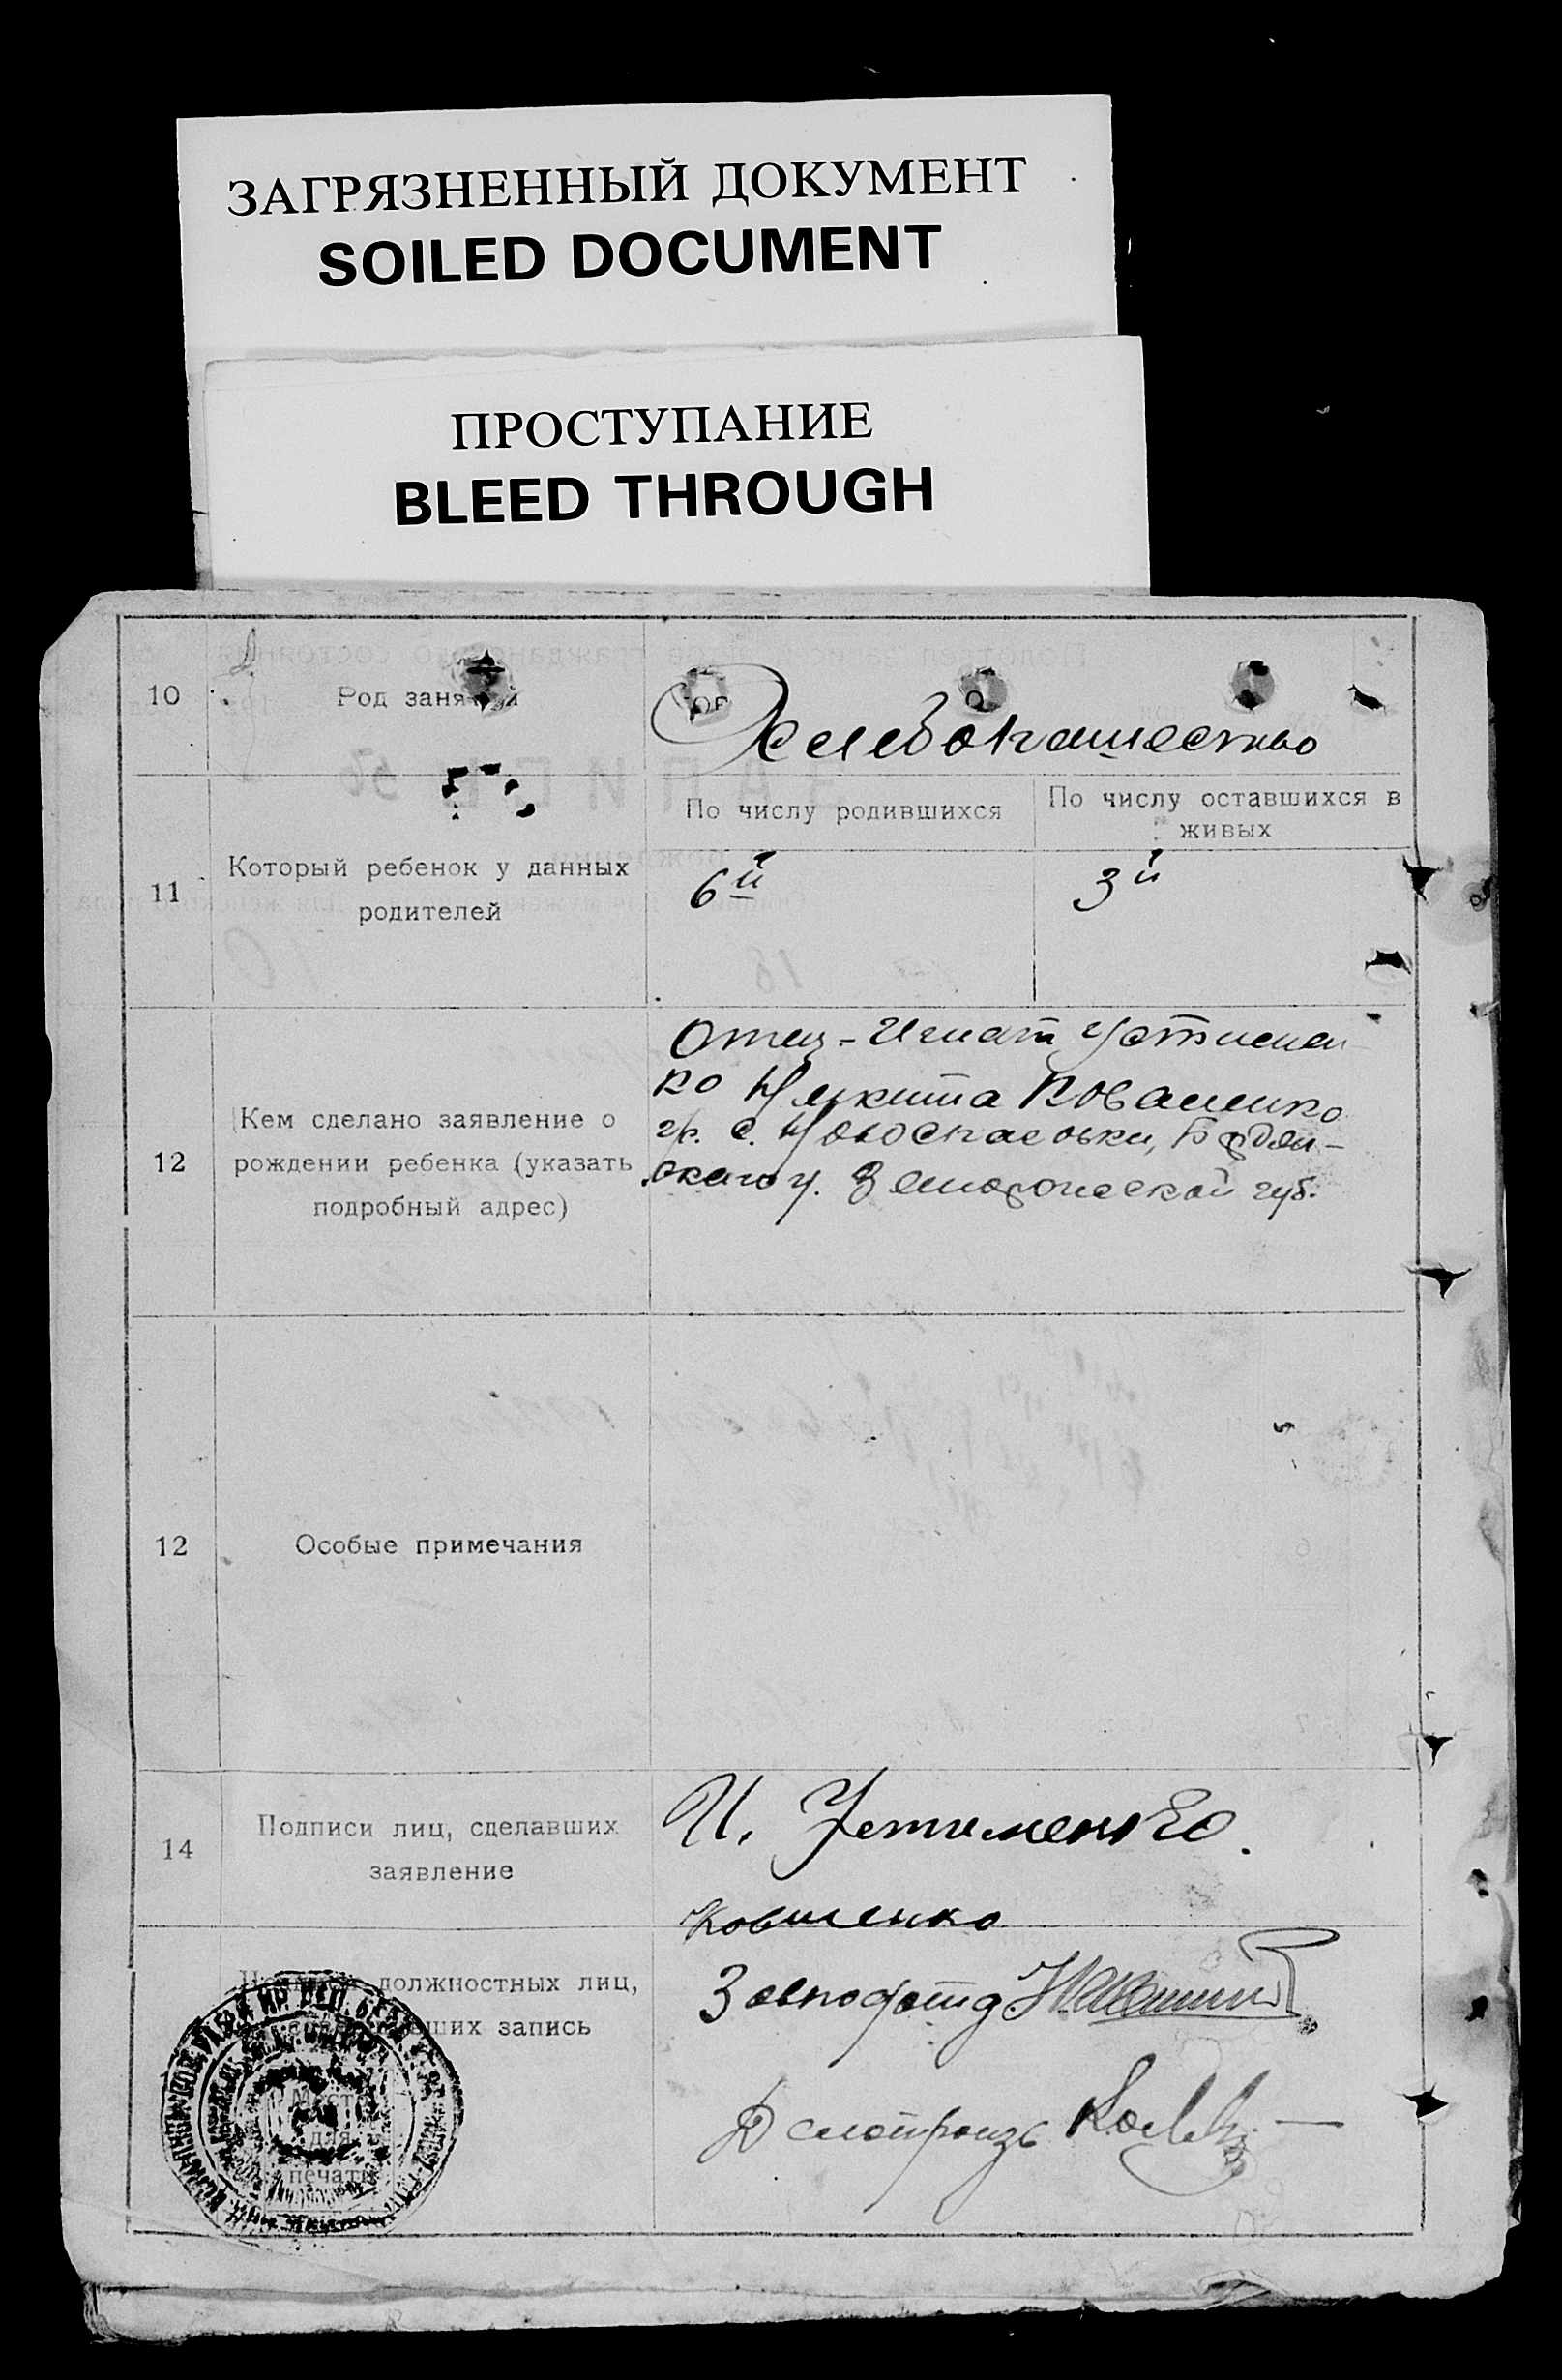 ЗАГРЯЗНЕННЫЙ ДОКУМЕНТ
SOILED DOCUMENT
ПРОСТУПАНИЕ
BLEED THROUGH
10
Род занятий
Хлебопашество
11
Который ребенок у данных
родителей
По числу родившихся
По числу оставшихся в
живых
6й
3й
12
Кем сделано заявление о
рождении ребенка (указать
подробный адрес)
Отец - Игнат Устимен
ко Никита Коваленко
гр. с. Новоспасовки, Бердян-
ского у. губ.
12
Особые примечания
14
Подписи лиц, сделавших
заявление
И. Устименко.
должностных лиц,
запись
место
для
печати